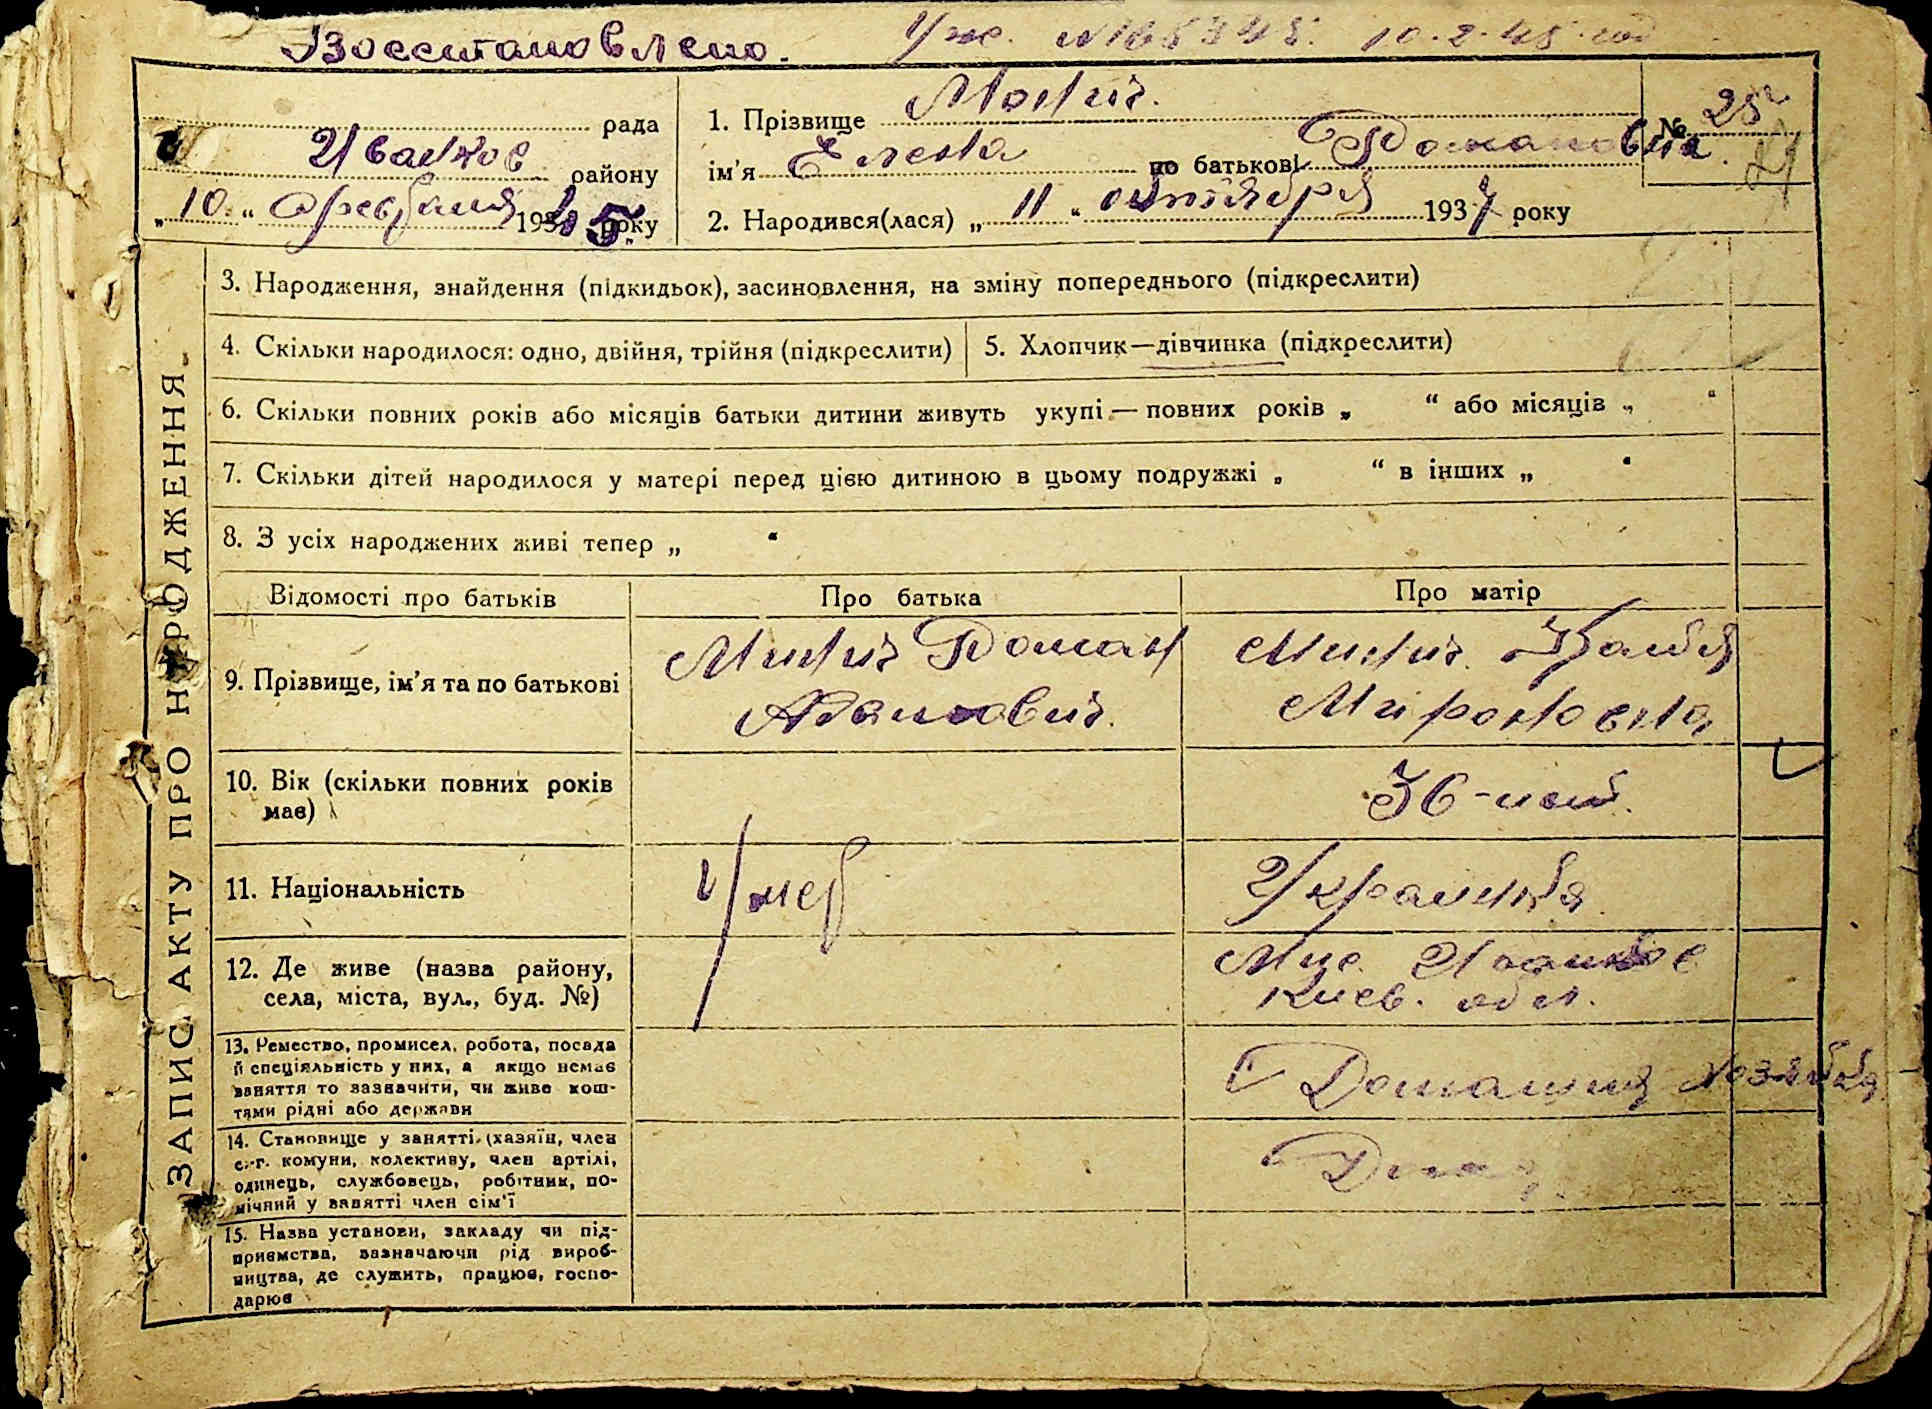 Восстановлено.
10.2.45
рада
Иванков району
„ 10 “ февраля 1945 року
1. Прізвище
ім'я Елена по батькові Романовна
№ 25
2. Народився(лася) „ 11 “ октября 1937 року
ЗАПИС АКТУ ПРО НАРОДЖЕННЯ
3. Народження, знайдення (підкидьок), засиновлення, на зміну попереднього (підкреслити)
4. Скільки народилося: одно, двійня, трійня (підкреслити)
5. Хлопчик—дівчинка (підкреслити)
6. Скільки повних років або місяців батьки дитини живуть укупі — повних років „ “ або місяців „ “
7. Скільки дітей народилося у матері перед цією дитиною в цьому подружжі „ “ в інших „ “
8. З усіх народжених живі тепер „ “
Відомості про батьків
Про батька
Про матір
9. Прізвище, ім'я та по батькові
Роман
Адамович.
Мироновна
10. Вік (скільки повних років
має)
36-лет.
11. Національність
Умер
Украинка
12. Де живе (назва району,
села, міста, вул., буд. №)
Иванков
Киев. обл.
13. Ремество, промисел, робота, посада
й спеціяльність у них, а якщо немає
заняття то зазначити, чи живе кош-
тами рідні або держави
Домашняя хозяйка
14. Становище у занятті (хазяїн, член
с.-г. комуни, колективу, член артілі,
одинець, службовець, робітник, по-
мічний у занятті член сім'ї
15. Назва установи, закладу чи під-
приємства, зазначаючи рід вироб-
ництва, де служить, працює, госпо-
дарює